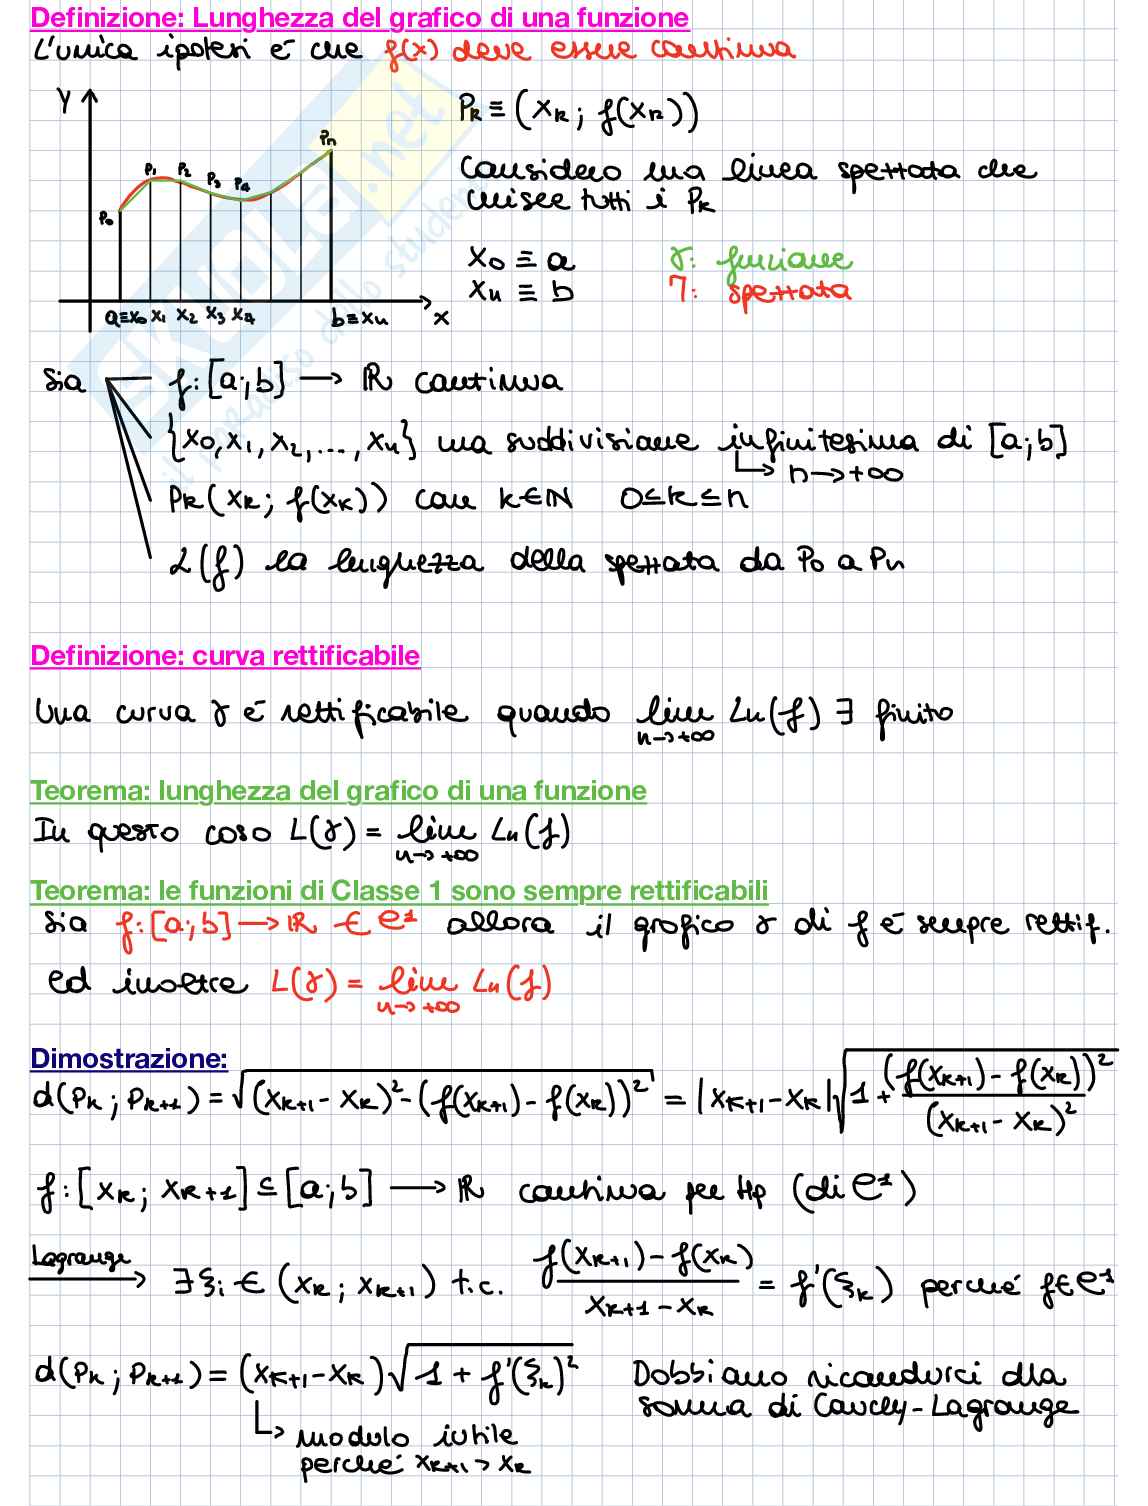 Definizione: Lunghezza del grafico di una funzione
L'unica ipotesi è che f(x) deve essere continua
Pk ≡ (xk ; f(xk))
Considero una linea spezzata che
unisce tutti i Pk
x0 ≡ a γ: funzione
xn ≡ b Γ: spezzata
y
P0 P1 P2 P3 P4 Pn
a≡x0 x1 x2 x3 x4 b≡xn x
SKUOLA.net
il paradiso dello studente
Sia f: [a;b] → ℝ continua
{x0, x1, x2, ..., xn} una suddivisione infinitesima di [a;b]
↳ n → +∞
Pk (xk ; f(xk)) con k∈ℕ 0≤k≤n
L(f) la lunghezza della spezzata da P0 a Pn
Definizione: curva rettificabile
Una curva γ è rettificabile quando lim n→+∞ Ln(f) ∃ finito
Teorema: lunghezza del grafico di una funzione
In questo caso L(γ) = lim n→+∞ Ln(f)
Teorema: le funzioni di Classe 1 sono sempre rettificabili
Sia f: [a;b] → ℝ ∈ C¹ allora il grafico γ di f è sempre rettif.
ed inoltre L(γ) = lim n→+∞ Ln(f)
Dimostrazione:
d(Pk ; Pk+1) = √((xk+1 - xk)² - (f(xk+1) - f(xk))²) = |xk+1 - xk| √(1 + (f(xk+1) - f(xk))² / (xk+1 - xk)²)
f: [xk ; xk+1] ⊆ [a;b] → ℝ continua per Hp (di C¹)
Lagrange → ∃ ξi ∈ (xk ; xk+1) t.c. (f(xk+1) - f(xk)) / (xk+1 - xk) = f'(ξk) perché f∈C¹
d(Pk ; Pk+1) = (xk+1 - xk) √(1 + f'(ξk)²) Dobbiamo ricondurci alla
somma di Cauchy-Lagrange
↳ modulo inutile
perché xk+1 > xk